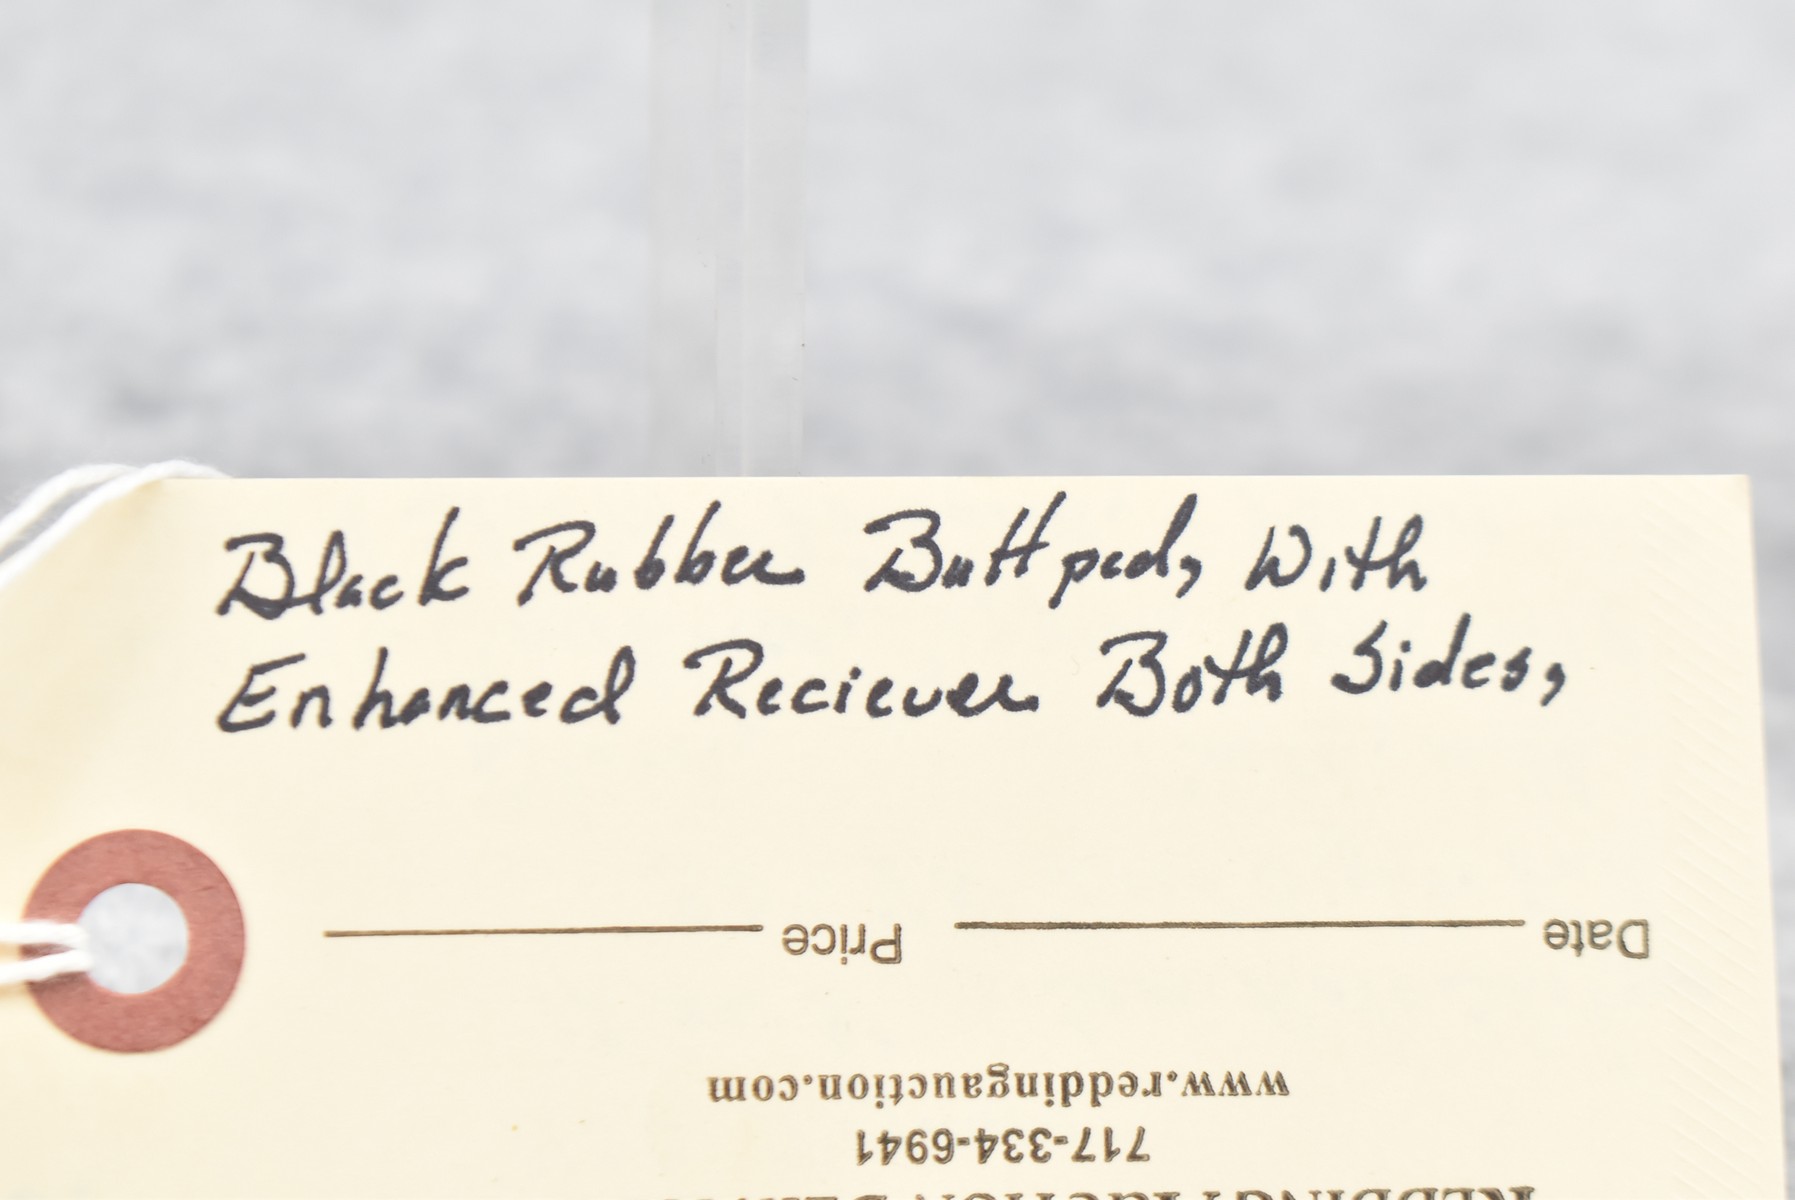 Black Rubber Buttpad, With
Enhanced Reciever Both Sides,
Date Price
www.reddingauction.com
717-334-6941